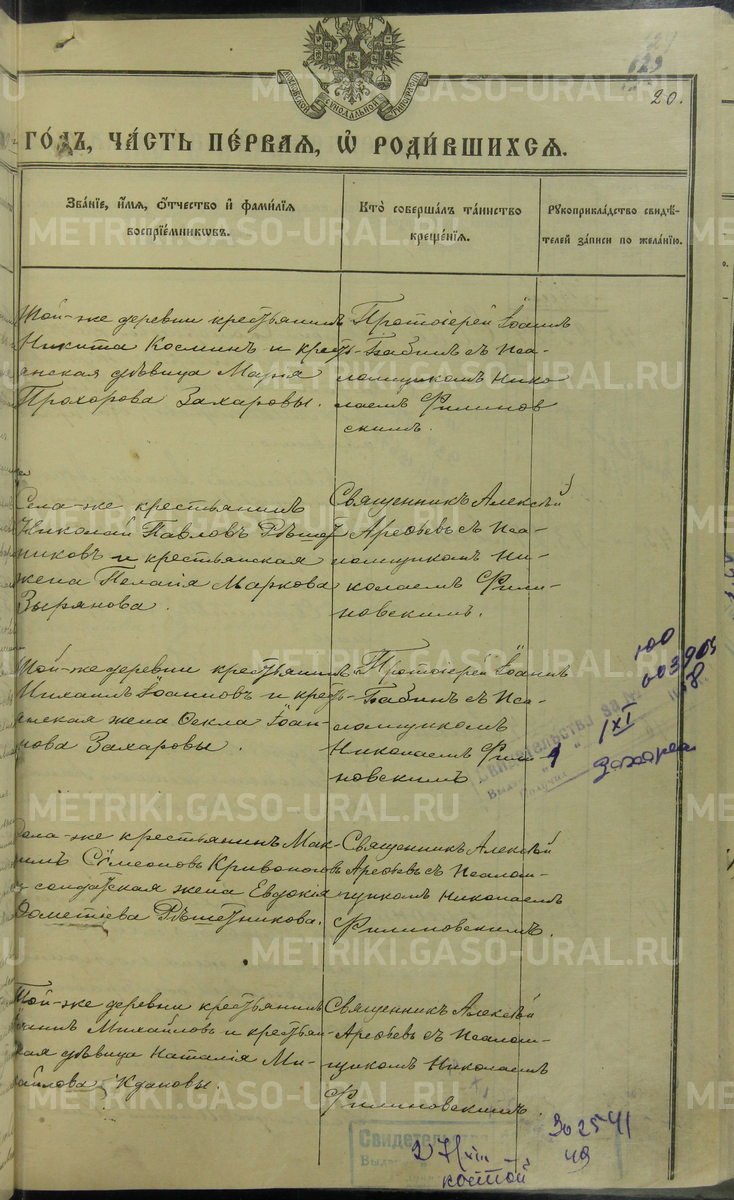 629
20.
ГОДЪ, ЧАСТЬ ПЕРВАЯ, Ѡ РОДИВШИХСЯ.
Званіе, имя, отчество и фамилія воспріемниковъ.
Кто совершалъ таинство крещенія.
Рукоприкладство свидѣтелей записи по желанію.
Той-же деревни крестьянинъ
Никита Косминъ и кресть-
янская дѣвица Марія
Прохорова Захаровы.
Протоіерей Іоаннъ
Бабинъ съ Пса-
ломщикомъ Нико
лаемъ Филинов
скимъ.
Села-же крестьянинъ
Николай Павловъ Рѣшет
никовъ и крестьянская
жена Пелагія Маркова
Зырянова.
Священникъ Алексѣй
Арефьевъ съ Пса-
ломщикомъ Ни-
колаемъ Фили-
новскимъ.
Той-же деревни крестьянинъ
Михаилъ Іоанновъ и кресть-
янская жена Фекла Іоан-
нова Захаровы.
Протоіерей Іоаннъ
Бабинъ съ Пса-
ломщикомъ
Николаемъ Фили-
новскимъ
Села-же крестьянинъ Мак-
симъ Сѷмеоновъ Кривоногов
и солдатская жена Евдокія
Дометіева Рѣшетникова.
Священникъ Алексѣй
Арефьевъ съ Псалом-
щикомъ Николаемъ
Филиновскимъ.
Той-же деревни крестьянинъ
Іоаннъ Михайловъ и крестьян-
ская дѣвица Наталія Ми-
хайлова Ждановы.
Священникъ Алексѣй
Арефьевъ съ Псалом-
щикомъ Николаемъ
Филиновскимъ.
Свидетельство
302541
49
METRIKI.GASO-URAL.RU